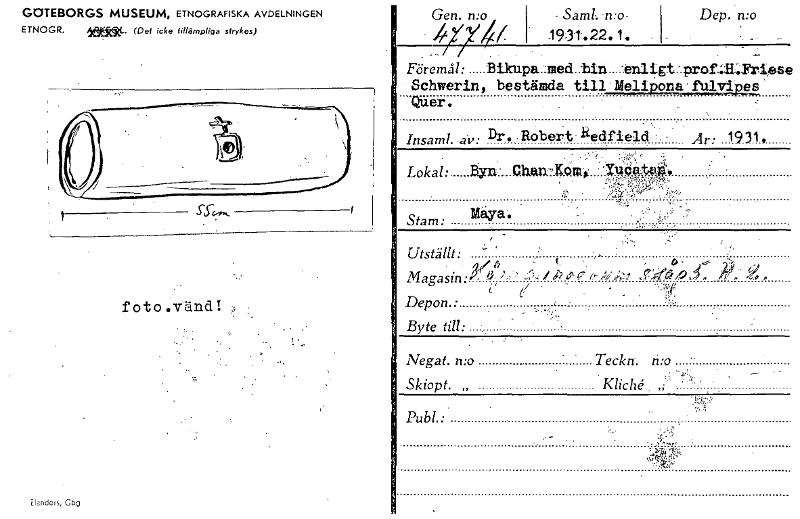 GÖTEBORGS MUSEUM, ETNOGRAFISKA AVDELNINGEN
ETNOGR. ARKEOL. (Det icke tillämpliga strykes)
55cm
foto.vänd!
Elanders, Gbg
Gen. n:o Saml. n:o Dep. n:o
47741. 1931.22.1.
Föremål: Bikupa med bin enligt prof.H.Friese
Schwerin, bestämda till Melipona fulvipes
Quer.
Insaml. av: Dr. Robert Redfield År: 1931.
Lokal: Byn Chan Kom, Yucatan.
Stam: Maya.
Utställt:
Magasin: skåp 5. H. 2.
Depon.:
Byte till:
Negat. n:o Teckn. n:o
Skiopt. „ Kliché „
Publ.: